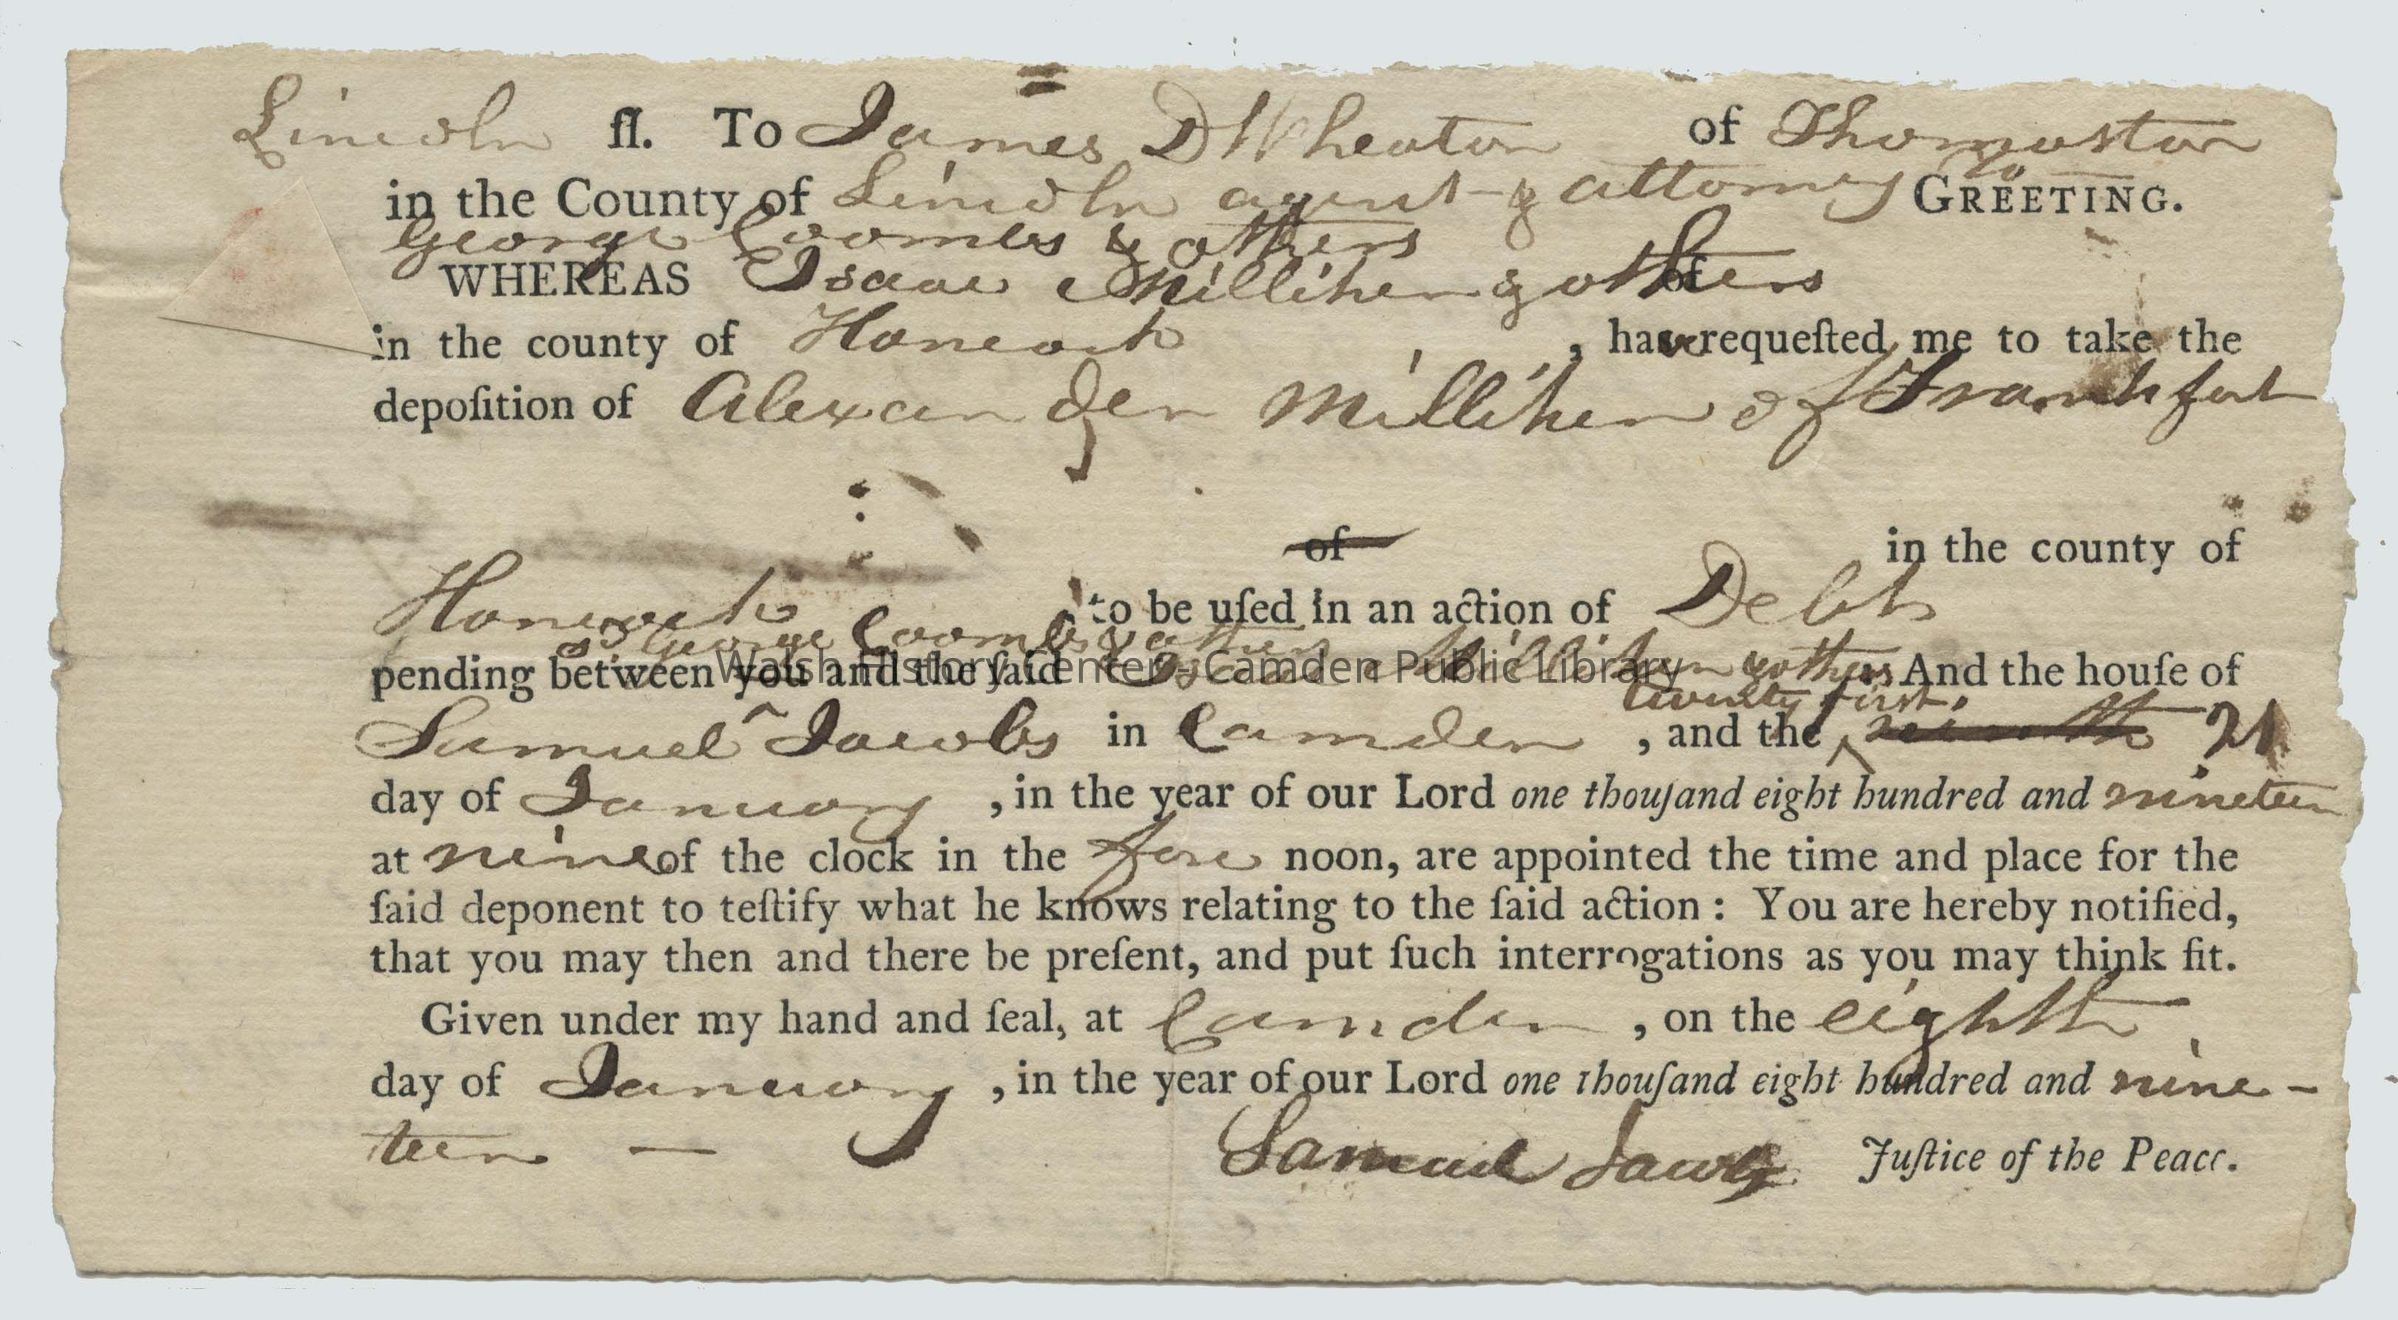 Lincoln ſſ. To James D Wheaton of Thomaston
in the County of Lincoln agent & attorney to GREETING.
George Coombs & others
WHEREAS Isaac Milliken & others of
in the county of Hancock , have requeſted me to take the
depoſition of Alexander Milliken of Frankfort
of in the county of
Hancock to be uſed in an action of Debt
sd George Coombs & others
pending between you and the ſaid Isaac Milliken & others And the houſe of
twenty first
Samuel Jacobs in Camden , and the ninth 21
day of January , in the year of our Lord one thouſand eight hundred and nineteen
at nine of the clock in the fore noon, are appointed the time and place for the
ſaid deponent to teſtify what he knows relating to the ſaid action : You are hereby notified,
that you may then and there be preſent, and put ſuch interrogations as you may think fit.
Given under my hand and ſeal, at Camden , on the eighth
day of January , in the year of our Lord one thouſand eight hundred and nine-
teen — Samuel Jacobs Juſtice of the Peace.
Walsh History Center - Camden Public Library